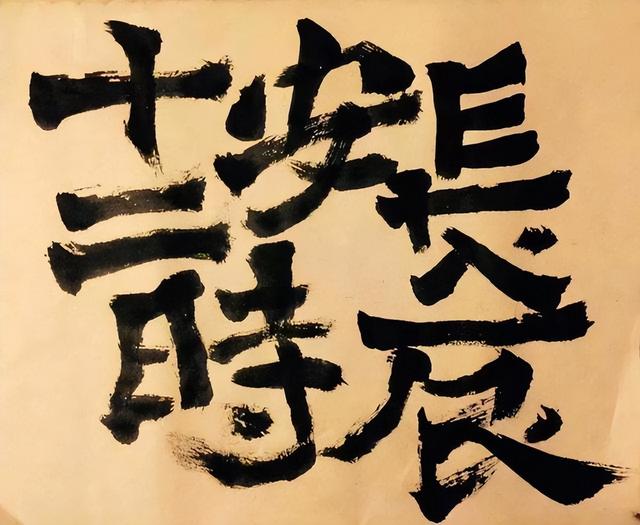 長安十二
時辰